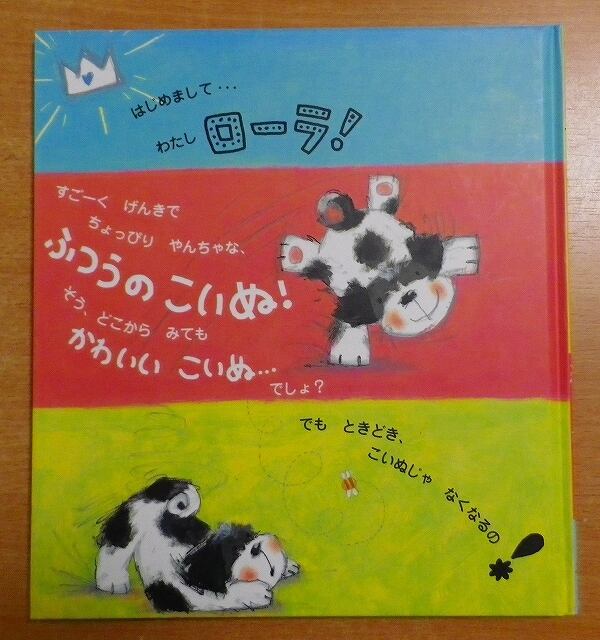 はじめまして・・・
わたし ローラ！
すごーく げんきで
ちょっぴり やんちゃな、
ふつうの こいぬ！
そう、どこから みても
かわいい こいぬ…
でしょ？
でも ときどき、
こいぬじゃ なくなるの！